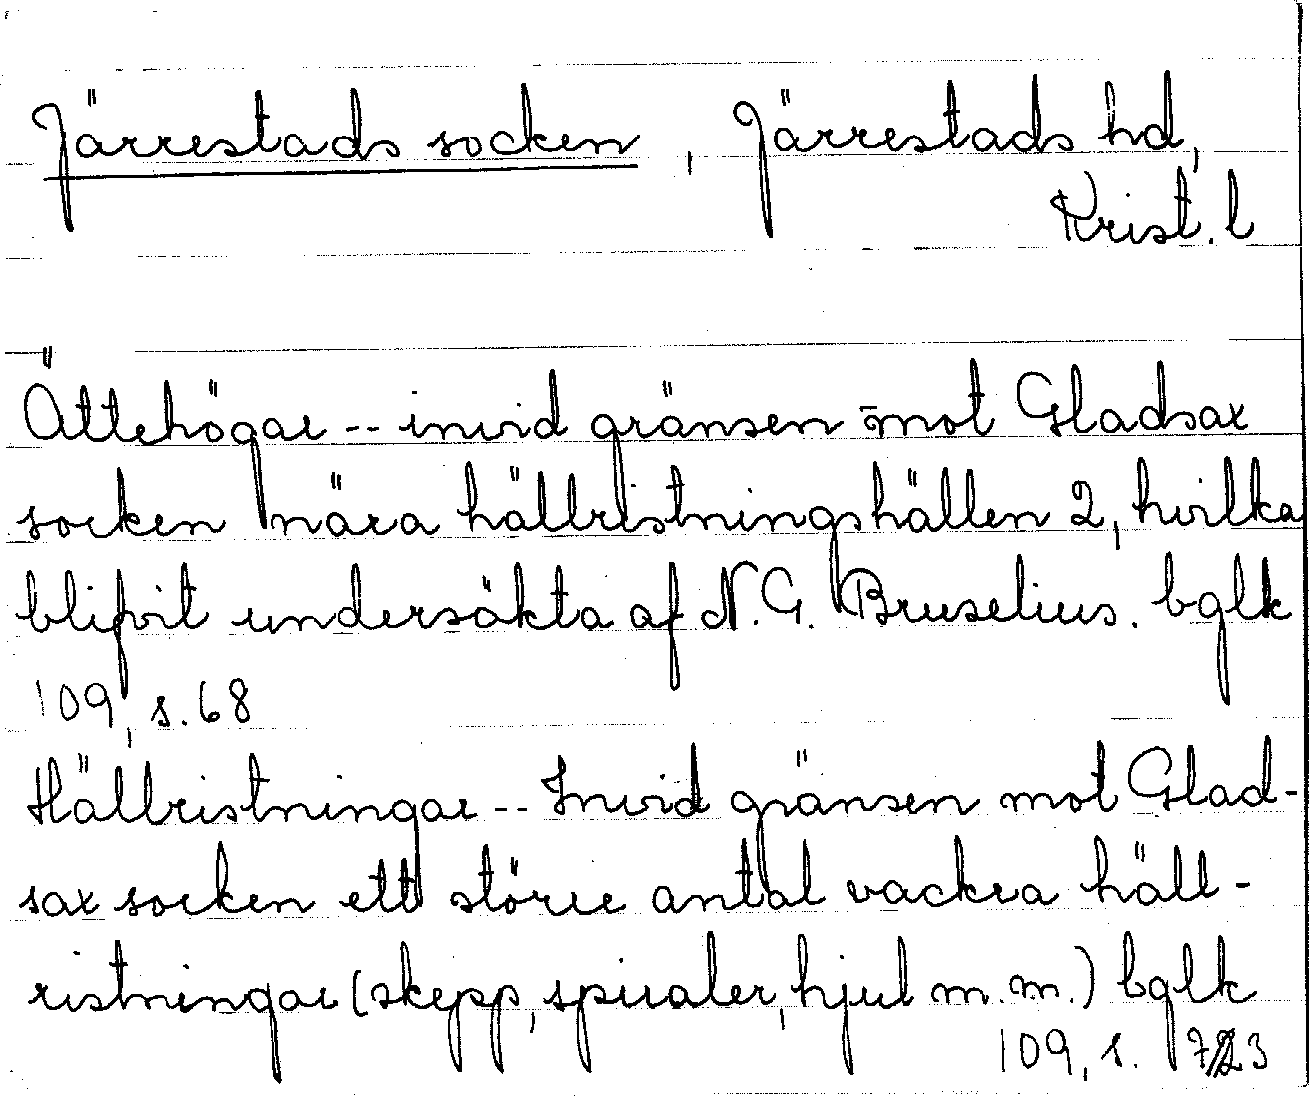 Järrestads socken, Järrestads hd,
Krist. l
Ättehögar -- invid gränsen mot Gladsax
socken nära hällristningshällen 2, hvilka
blifvit undersökta af N. G. Bruselius. bglk
109, s. 68
Hällristningar -- Invid gränsen mot Glad-
sax socken ett större antal vackra häll-
ristningar (skepp, spiraler, hjul m. m.) bglk
109, s. 73